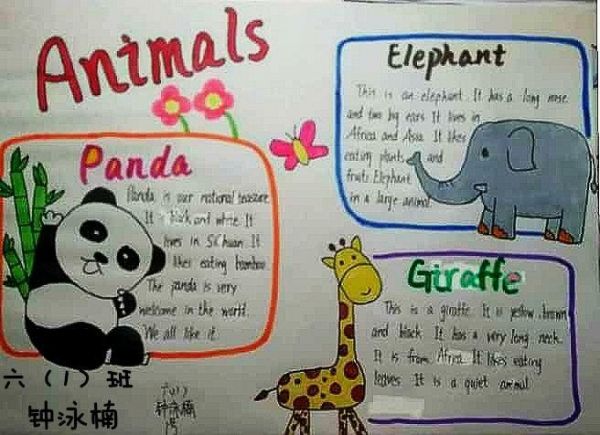 Animals
Panda
Panda is our national treasure.
It is black and white. It
lives in SiChuan. It
likes eating bamboo.
The panda is very
welcome in the world.
We all like it.
Elephant
This is an elephant. It has a long nose
and two big ears. It lives in
Africa and Asia. It likes
eating plants and
fruits. Elephant
is a large animal.
Giraffe
This is a giraffe. It is yellow, brown
and black. It has a very long neck.
It is from Africa. It likes eating
leaves. It is a quiet animal.
六（1）班
钟泳楠
六(1)
钟泳楠